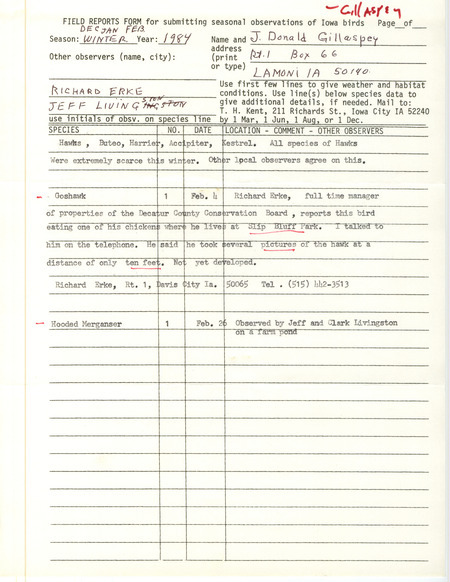 -Gillaspey
FIELD REPORTS FORM for submitting seasonal observations of Iowa birds Page__of__
DEC JAN FEB.
Season: WINTER Year: 1984 Name and J. Donald Gillaspey
address
Other observers (name, city): (print Rt.1 Box 66
or type) LAMONI IA 50140
RICHARD ERKE
JEFF LIVINGSTON
Use first few lines to give weather and habitat
conditions. Use line(s) below species data to
give additional details, if needed. Mail to:
T. H. Kent, 211 Richards St., Iowa City IA 52240
use initials of obsv. on species line by 1 Mar, 1 Jun, 1 Aug, or 1 Dec.
SPECIES NO. DATE LOCATION - COMMENT - OTHER OBSERVERS
Hawks , Buteo, Harrier, Accipiter, Kestrel. All species of Hawks
Were extremely scarce this winter. Other local observers agree on this.
- Goshawk 1 Feb. 4 Richard Erke, full time manager
of properties of the Decatur County Conservation Board , reports this bird
eating one of his chickens where he lives at Slip Bluff Park. I talked to
him on the telephone. He said he took several pictures of the hawk at a
distance of only ten feet. Not yet developed.
Richard Erke, Rt. 1, Davis City Ia. 50065 Tel . (515) 442-3513
- Hooded Merganser 1 Feb. 26 Observed by Jeff and Clark Livingston
on a farm pond